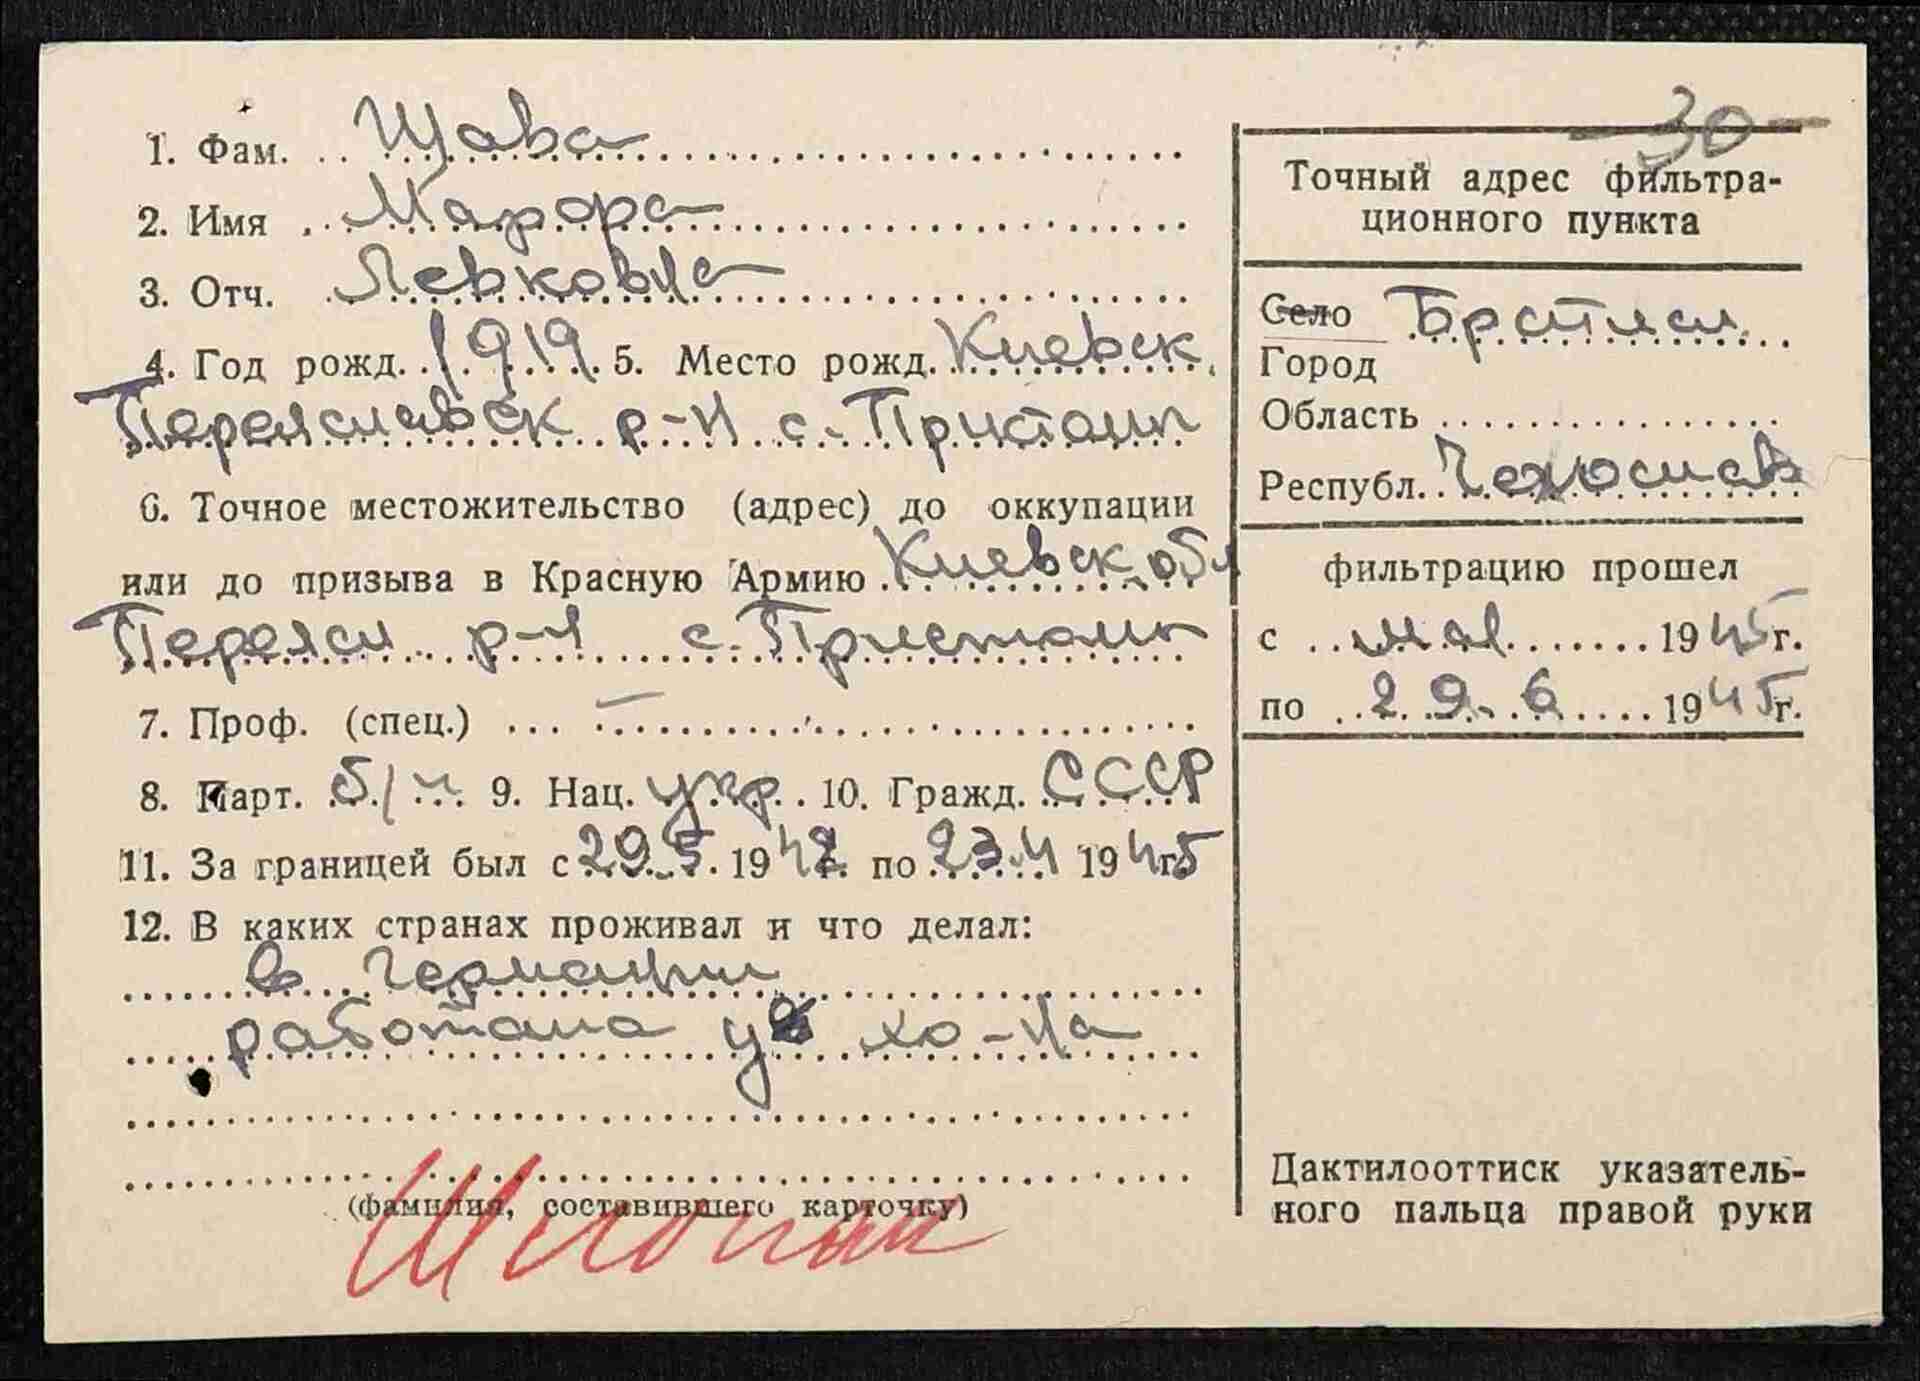 -30-
1. Фам. Щава
2. Имя Марфа
3. Отч. Левковна
4. Год рожд. 1919 5. Место рожд. Киевск.
Переяславск р-н с. Пристань
6. Точное местожительство (адрес) до оккупации
или до призыва в Красную Армию Киевск. обл
Переясл. р-н с. Пристань
7. Проф. (спец.) —
8. Парт. б/п 9. Нац. укр. 10. Гражд. СССР
11. За границей был с 29.5. 1942 г. по 23.4 1945 г.
12. В каких странах проживал и что делал:
в Германии
работала у хо-на
(фамилия, составившего карточку)
Точный адрес фильтра-
ционного пункта
Село Братисл.
Город
Область
Республ. Чехослов
фильтрацию прошел
с мая 1945 г.
по 29.6 1945 г.
Дактилооттиск указатель-
ного пальца правой руки